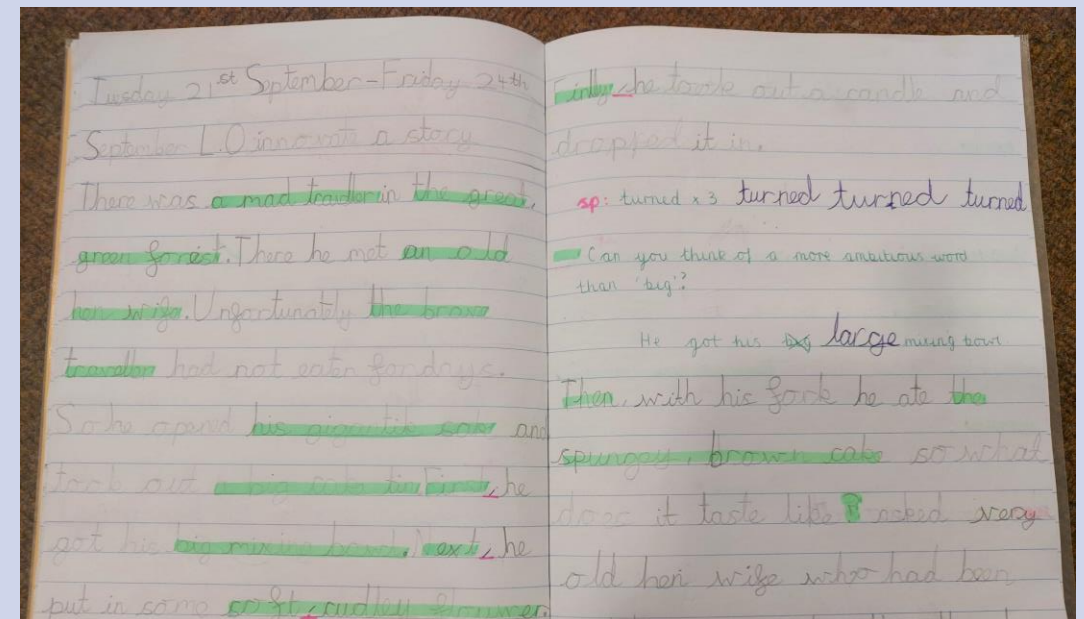 Tuesday 21st September-Friday 24th
September L.O innovate a story
There was a mad traveller in the great,
green forest. There he met an old
hen wife. Unfortunately the brave
traveller had not eaten for days.
So he opened his gigantik sake and
took out a big cake tin. First, he
got his big mixing bowl. Next, he
put in some soft, cudley flouwer.
Finlly, he towk out a candle and
dropped it in.
sp: turned x 3 turned turned turned
Can you think of a more ambitious word
than 'big'?
He got his big large mixing bowl
Then, with his fork he ate the
spungey, brown cake so what
does it taste like? asked very
old hen wife who had been